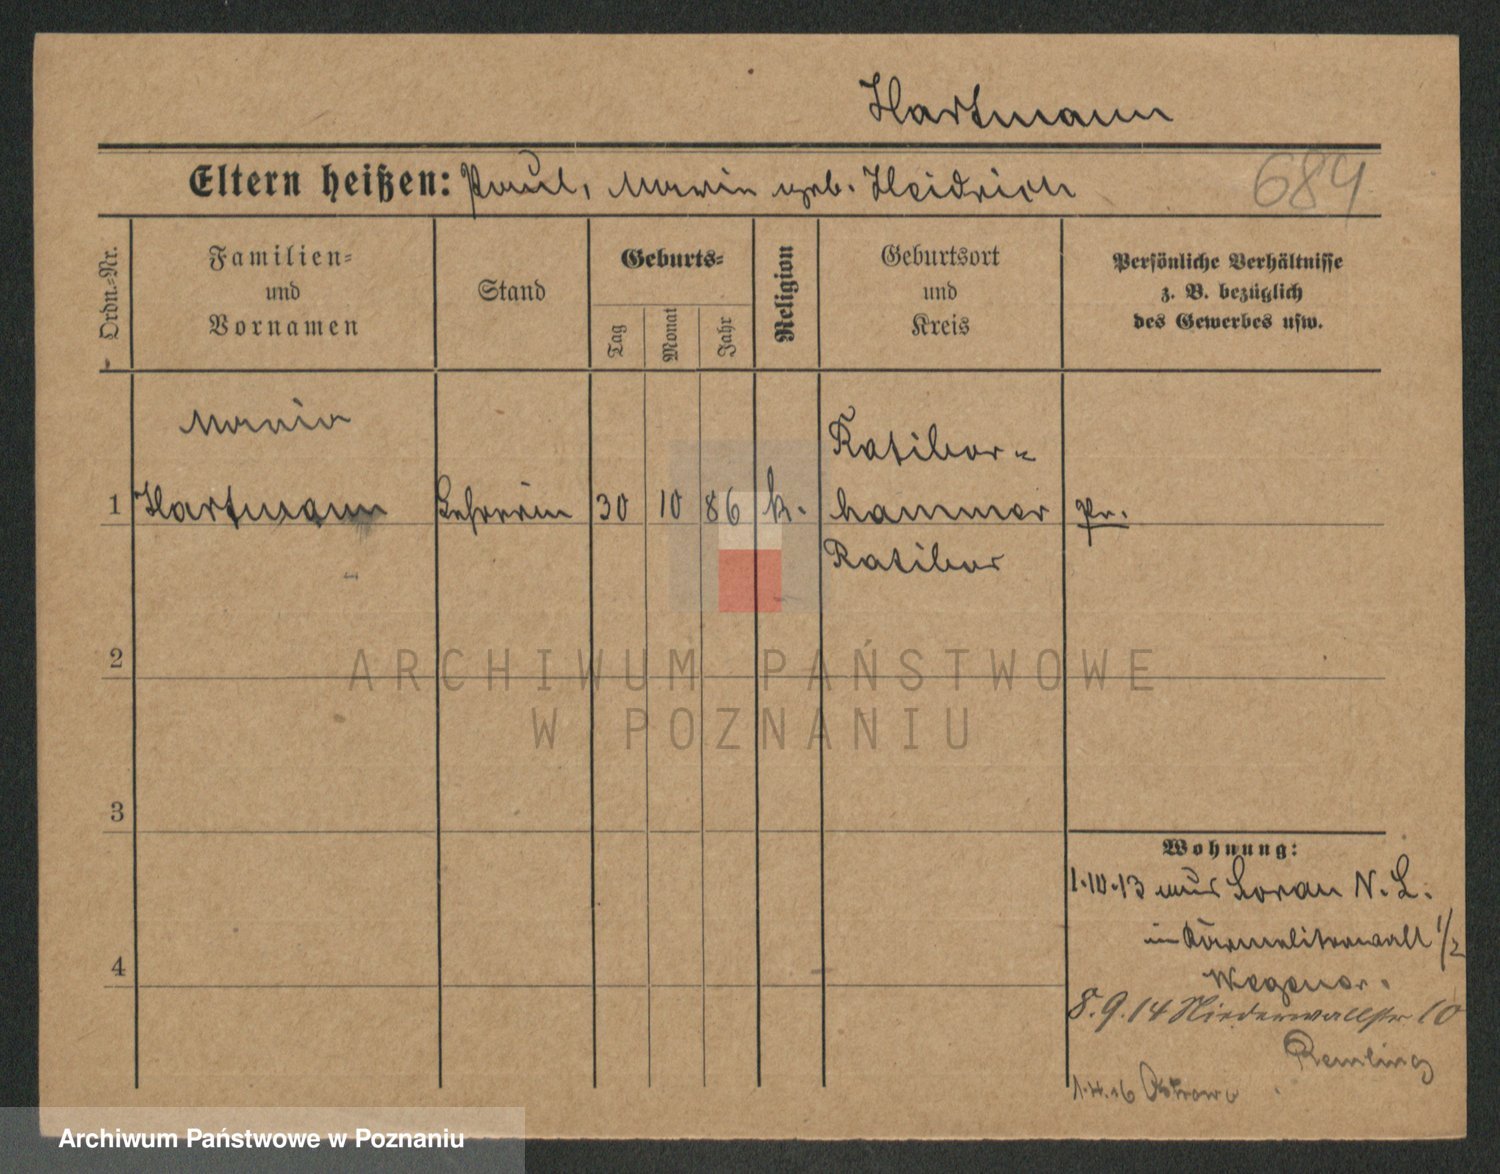 Hartmann
Eltern heißen: Paul, Maria geb. Heidrich
684
Ordn.-Nr.
Familien-
und
Vornamen
Stand
Geburts-
Tag
Monat
Jahr
Religion
Geburtsort
und
Kreis
Persönliche Verhältnisse
z. B. bezüglich
des Gewerbes usw.
Maria
Ratibor-
1 Hartmann Lehrerin 30 10 86 k. hammer Pr.
Ratibor
2
3
4
ARCHIWUM PAŃSTWOWE
W POZNANIU
Wohnung:
1.10.13 aus Soran N. L.
in Karmeliterwall 1/2
Wegener.
8.9.14 Niederwallstr 10
Remling
1.4.16 Ostrowo
Archiwum Państwowe w Poznaniu